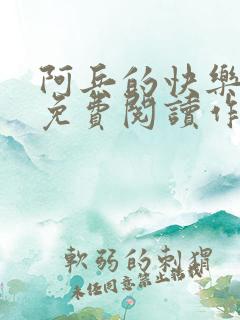 阿兵的快樂
免費閱讀作
軟弱的刺猬
未经同意禁止转载